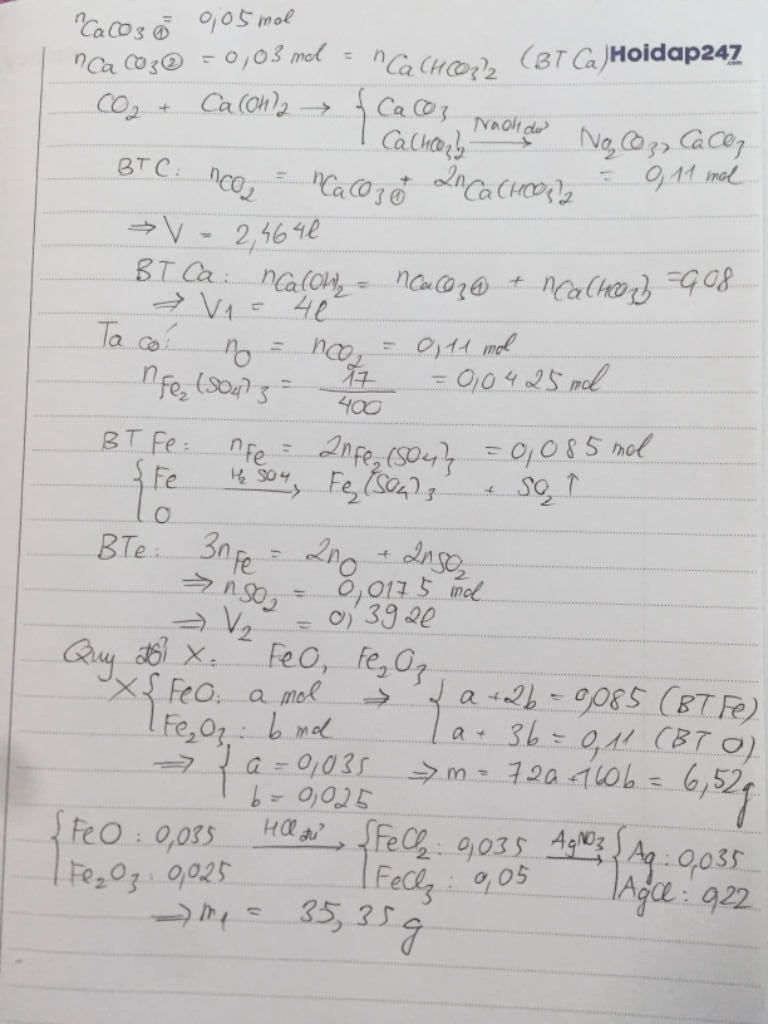 nCaCO3① = 0,05 mol
nCaCO3② = 0,03 mol = nCa(HCO3)2 (BTCa) Hoidap247.com
CO2 + Ca(OH)2 → { CaCO3
Ca(HCO3)2 NaOH dư → Na2CO3, CaCO3
BTC: nCO2 = nCaCO3① + 2nCa(HCO3)2 = 0,11 mol
⇒ V = 2,464l
BTCa: nCa(OH)2 = nCaCO3① + nCa(HCO3)2 = 0,08
⇒ V1 = 4l
Ta có: nO = nCO2 = 0,11 mol
nFe2(SO4)3 = 17/400 = 0,0425 mol
BTFe: nFe = 2nFe2(SO4)3 = 0,085 mol
{ Fe H2SO4 → Fe2(SO4)3 + SO2 ↑
O
BTe: 3nFe = 2nO + 2nSO2
⇒ nSO2 = 0,0175 mol
⇒ V2 = 0,392l
Quy đổi X: FeO, Fe2O3
X { FeO: a mol ⇒ { a + 2b = 0,085 (BTFe)
Fe2O3: b mol a + 3b = 0,11 (BTO)
⇒ { a = 0,035 ⇒ m = 72a + 160b = 6,52g
b = 0,025
{ FeO: 0,035 HCl dư → { FeCl2: 0,035 AgNO3 → { Ag: 0,035
Fe2O3: 0,025 FeCl3: 0,05 AgCl: 0,22
⇒ m1 = 35,35g